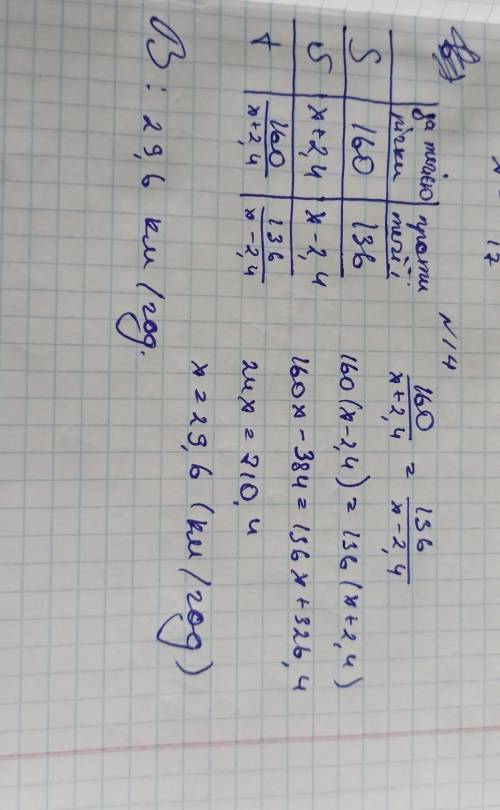 17
N 14
за течією річки | проти течії
S | 160 | 136
v | x+2,4 | x-2,4
t | 160/x+2,4 | 136/x-2,4
160/x+2,4 = 136/x-2,4
160(x-2,4) = 136(x+2,4)
160x - 384 = 136x + 326,4
24x = 710,4
x = 29,6 (км/год)
В: 29,6 км/год.